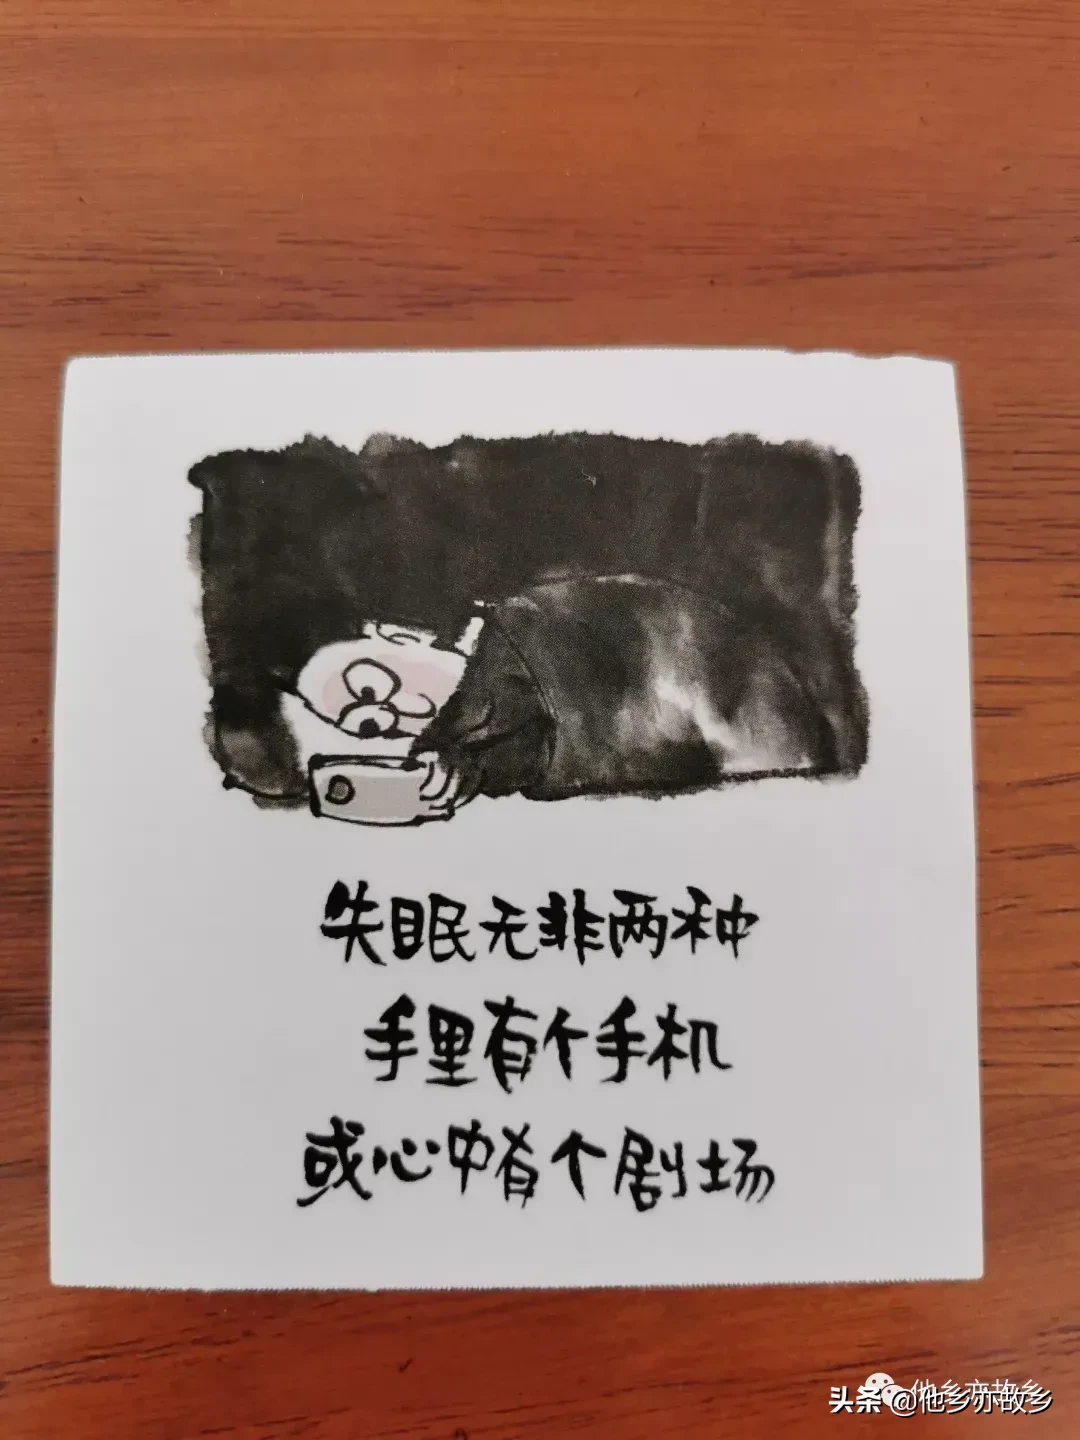 失眠无非两种
手里有个手机
或心中有个剧场
他乡亦故乡
头条 @他乡亦故乡